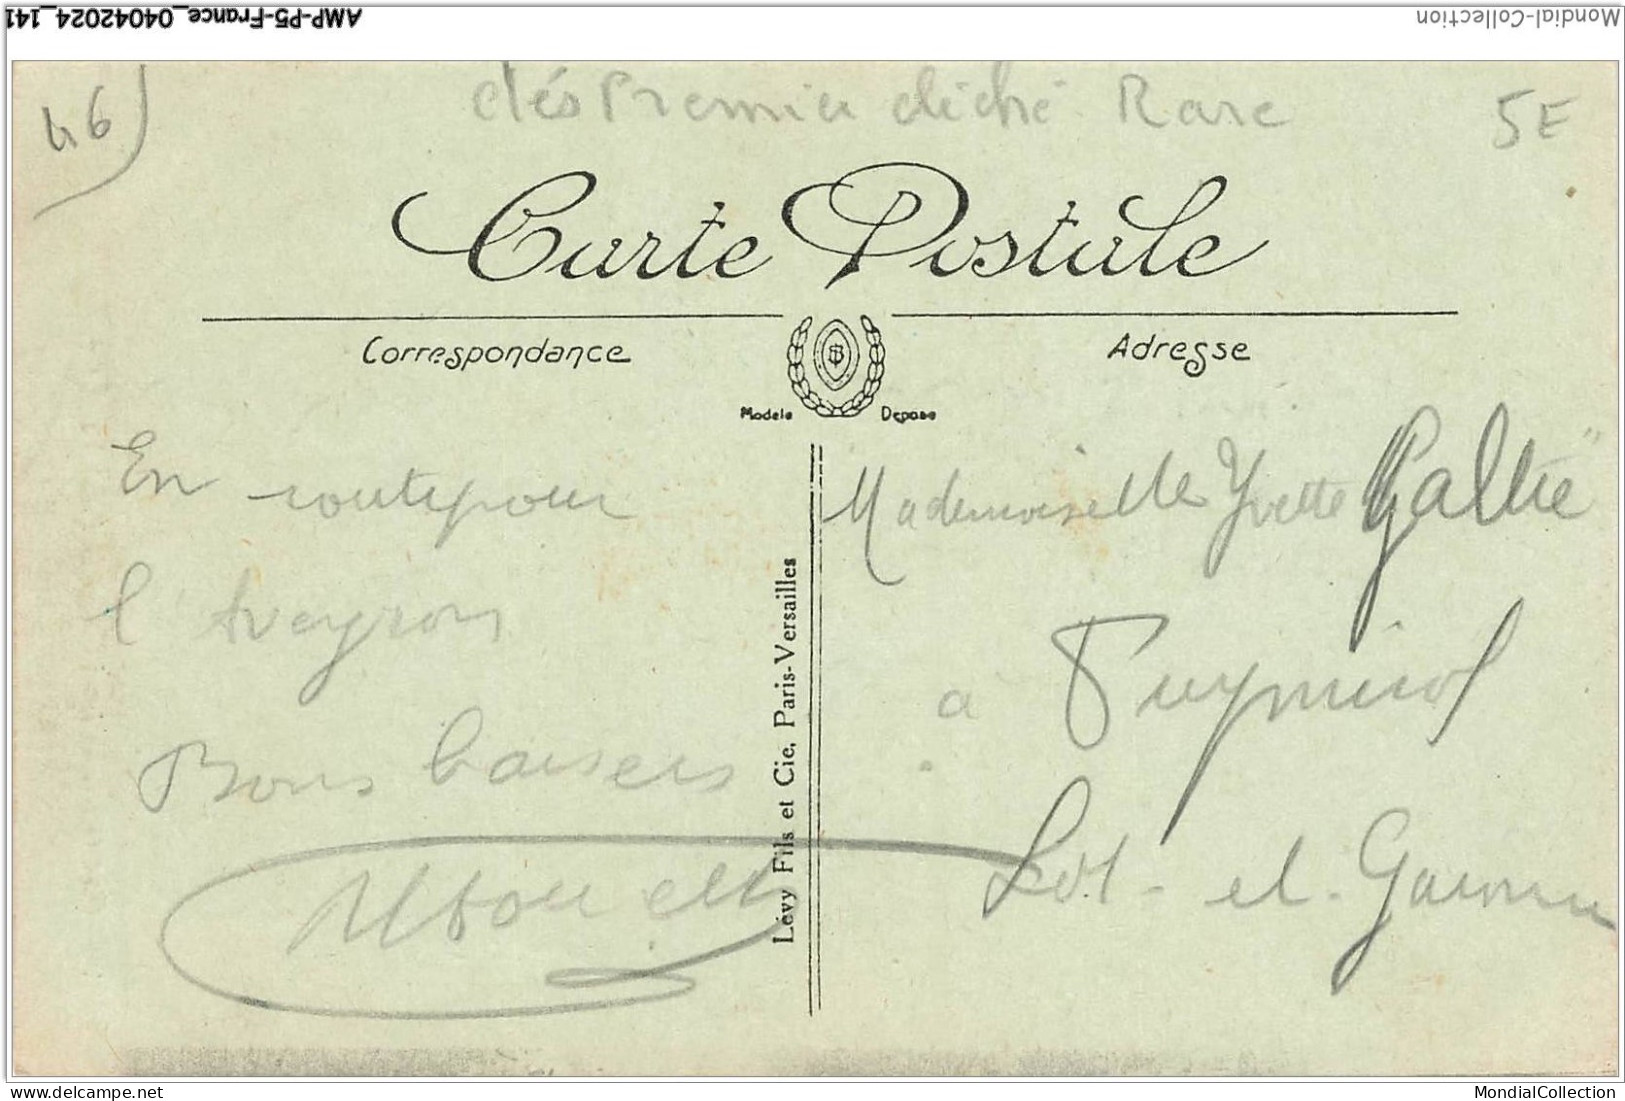 AMP-P5-France_04042024_141
Mondial-Collection
46
Premier cliché Rare
5E
Carte Postale
Correspondance
Adresse
Modele Depose
En route pour
l'Aveyron
Bons baisers
Mademoiselle Yvette
à Puymirol
Lot-et-Garonne
Lévy Fils et Cie, Paris-Versailles
delcampe.net
MondialCollection